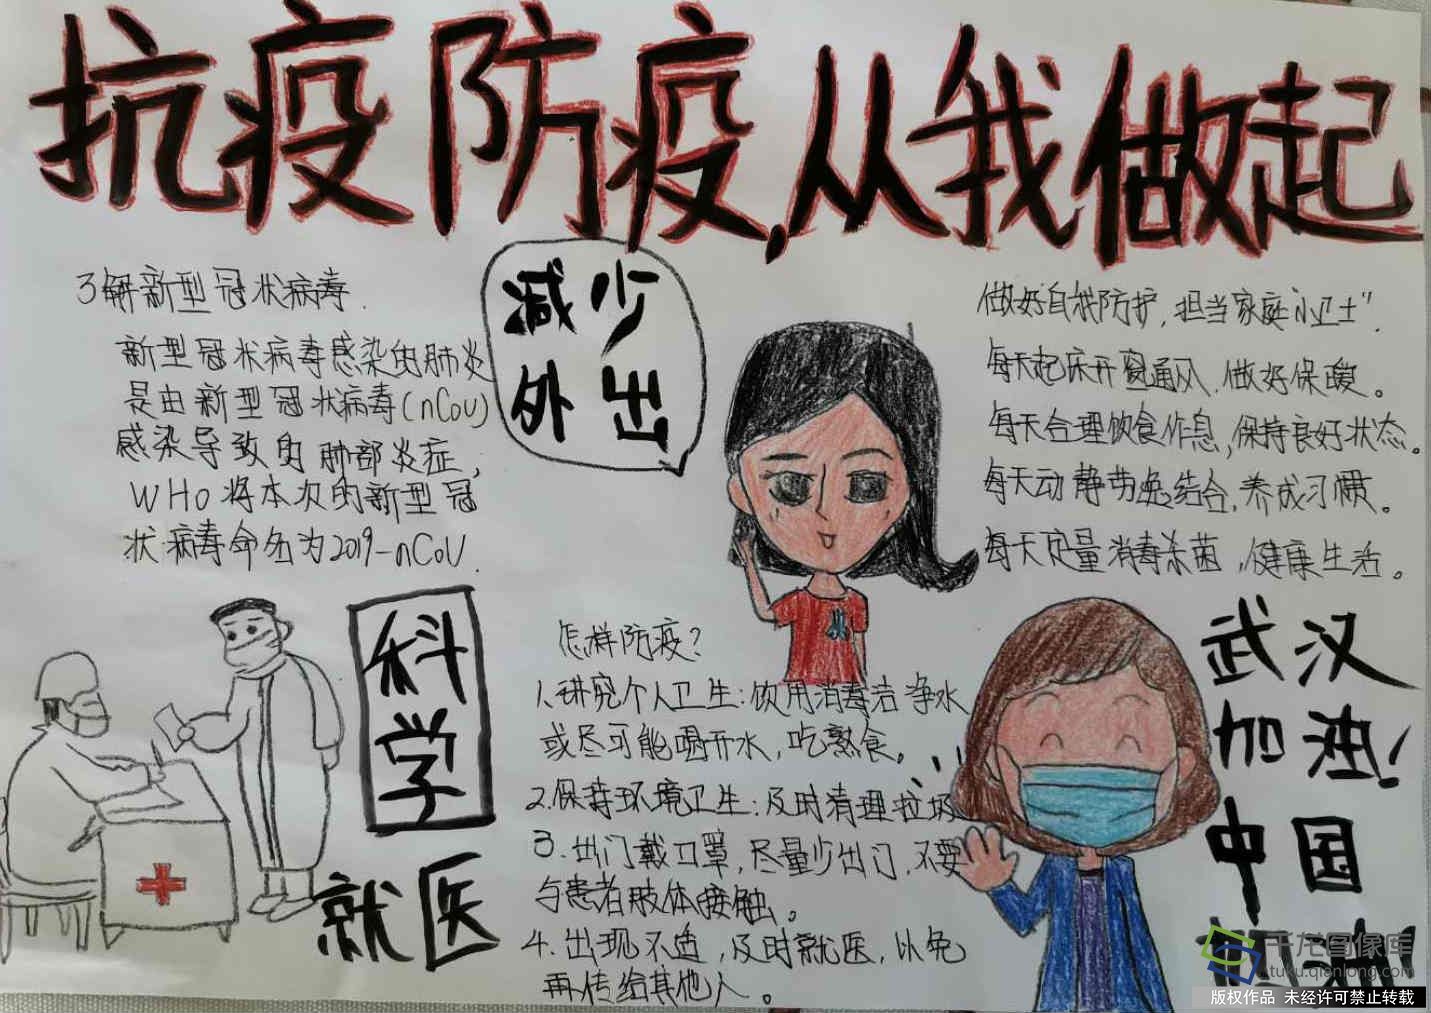 抗疫防疫,从我做起
了解新型冠状病毒.
新型冠状病毒感染的肺炎
是由新型冠状病毒(nCoV)
感染导致的肺部炎症,
WHO将本次的新型冠
状病毒命名为2019-nCoV.
减少
外出
做好自我防护,担当家庭小卫士".
每天起床开窗通风,做好保暖。
每天合理饮食作息,保持良好状态。
每天动静劳逸结合,养成习惯。
每天定量消毒杀菌,健康生活。
科学
就医
怎样防疫?
1.讲究个人卫生:饮用消毒洁净水
或尽可能喝开水,吃熟食。
2.保持环境卫生:及时清理垃圾
3.出门戴口罩,尽量少出门,不要
与患者肢体接触。
4.出现不适,及时就医,以免
再传给其他人。
武汉
加油!
中国
千龙图像库
tuku.qianlong.com
版权作品 未经许可禁止转载